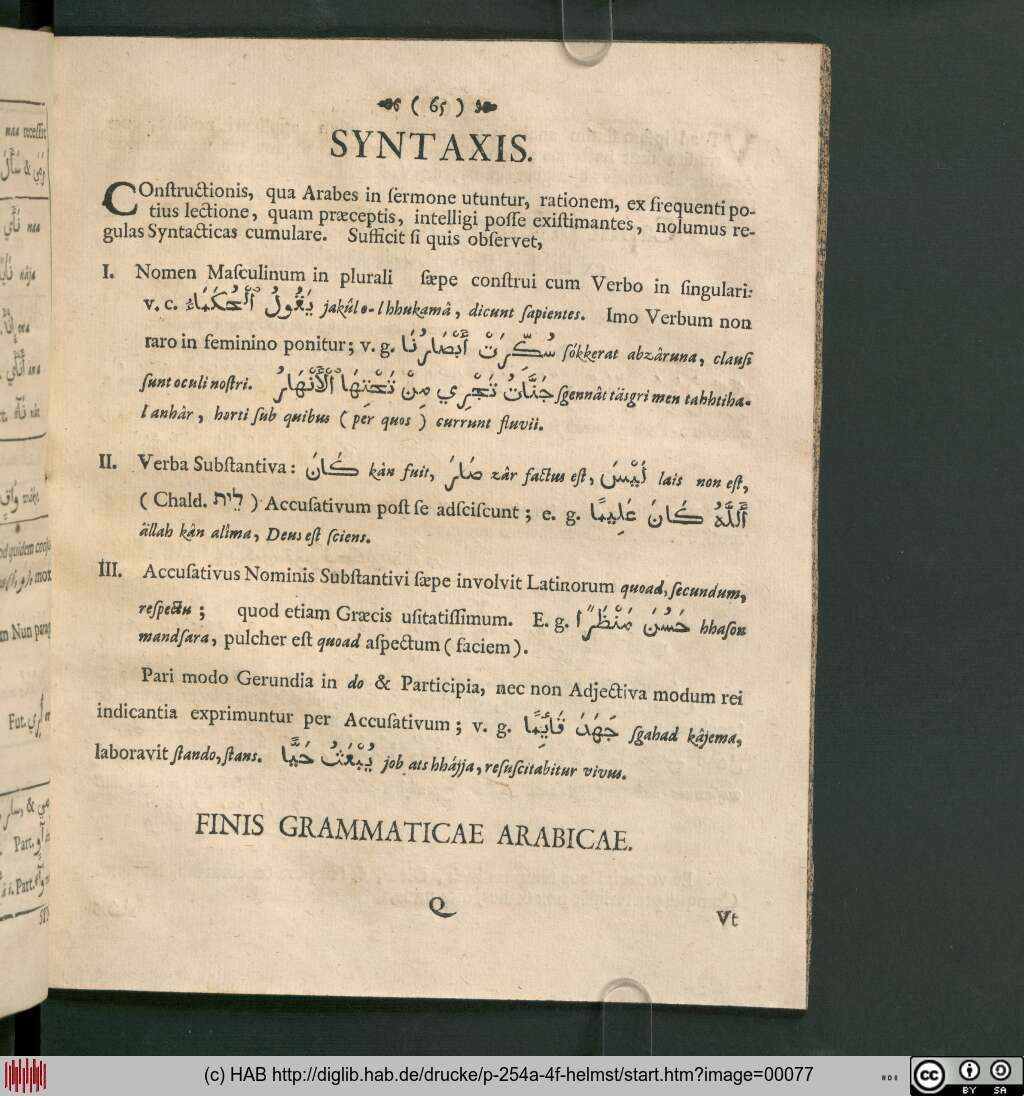 naa recessit
naa
nâja
( 65 )
SYNTAXIS.
COnſtructionis, qua Arabes in ſermone utuntur, rationem, ex frequenti po-
tius lectione, quam præceptis, intelligi poſſe exiſtimantes, nolumus re-
gulas Syntacticas cumulare. Sufficit ſi quis obſervet,
I. Nomen Maſculinum in plurali ſæpe conſtrui cum Verbo in ſingulari:
v. c. يَقُولُ ٱلْحُكَمَاءُ jakûl o-lhhukamâ, dicunt ſapientes. Imo Verbum non
raro in feminino ponitur; v. g. سُكِّرَتْ أَبْصَارُنَا ſókkerat abzâruna, clauſi
ſunt oculi noſtri. جَنَّاتُ تَجْرِي مِنْ تَحْتِهَا ٱلْأَنْهَارُ ſgennât täsgri men tahhtiha-
l anhâr, horti ſub quibus ( per quos ) currunt fluvii.
II. Verba Subſtantiva: كَانَ kân fuit, صَارَ zâr factus eſt, لَيْسَ lais non eſt,
( Chald. לֵית ) Accuſativum poſt ſe adſciſcunt; e. g. أَللَّهُ كَانَ عَلِيمًا
ällah kân alîma, Deus eſt ſciens.
III. Accuſativus Nominis Subſtantivi ſæpe involvit Latinorum quoad, ſecundum,
reſpectu; quod etiam Græcis uſitatiſſimum. E. g. حَسُنَ مَنْظَرًا hhaſon
mandſara, pulcher eſt quoad aſpectum ( faciem ).
Pari modo Gerundia in do & Participia, nec non Adjectiva modum rei
indicantia exprimuntur per Accuſativum; v. g. جَهَدَ قَائِمًا ſgahad kâjema,
laboravit ſtando, ſtans. يُبْعَثُ حَيًّا job ats hhájja, reſuſcitabitur vivus.
FINIS GRAMMATICAE ARABICAE.
Q
Vt
(c) HAB http://diglib.hab.de/drucke/p-254a-4f-helmst/start.htm?image=00077
HAB
cc BY SA